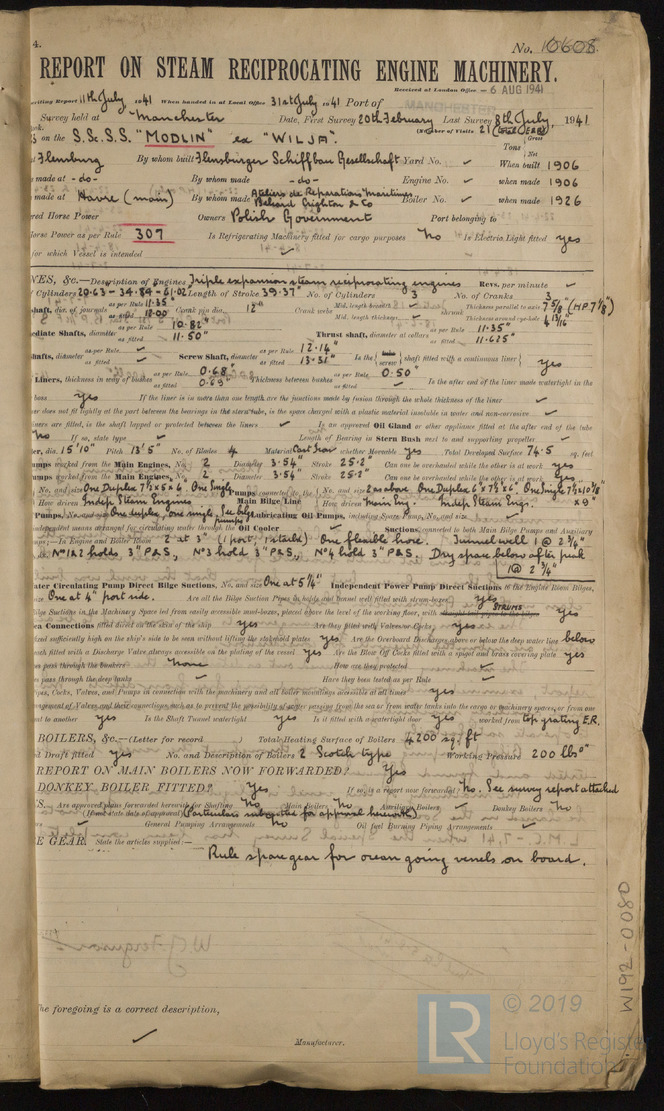 4.
No. 10608.
REPORT ON STEAM RECIPROCATING ENGINE MACHINERY.
Received at London Office - 6 AUG 1941
writing Report 11th July 1941 When handed in at Local Office 31st July 1941 Port of MANCHESTER
Survey held at Manchester Date, First Survey 20th February Last Survey 8th July, 1941
(Number of Visits 21
on the S.Sc.S.S. "MODLIN" ex "WILJA". Tons Gross Net
Flensburg By whom built Flensburger Schiffbau Gesellschaft Yard No. ✓ When built 1906
made at - do - By whom made - do - Engine No. ✓ when made 1906
made at Havre (main) By whom made Ateliers de Reparations Maritimes Beliard Crighton & Co Boiler No. ✓ when made 1926
Horse Power Owners Polish Government Port belonging to
Horse Power as per Rule 307 Is Refrigerating Machinery fitted for cargo purposes No Is Electric Light fitted yes
for which Vessel is intended ✓
NES, &c.—Description of Engines Triple expansion steam reciprocating engines Revs. per minute ✓
Cylinders 20.63 - 34.84 - 61.02 Length of Stroke 39.37" No. of Cylinders 3 No. of Cranks 3
shaft, dia. of journals as per Rule 11.35" as fitted 12.00" Crank pin dia. 12" Crank webs Mid. length breadth ✓ Mid. length thickness ✓ shrunk Thickness parallel to axis 7 5/8" (H.P. 7 1/8") Thickness around eye-hole 4 13/16"
mediate Shafts, diameter as per Rule 10.82" as fitted 11.50" Thrust shaft, diameter at collars as per Rule 11.35" as fitted 11.625"
Shafts, diameter as per Rule ✓ as fitted ✓ Screw Shaft, diameter as per Rule 12.14" as fitted 13.31" Is the screw shaft fitted with a continuous liner yes
Liners, thickness in way of bushes as per Rule 0.68" as fitted 0.69" Thickness between bushes as per Rule 0.50" as fitted ✓ Is the after end of the liner made watertight in the
boss yes If the liner is in more than one length are the joints made by fusion through the whole thickness of the liner ✓
does not fit tightly at the part between the bearings in the stern tube, is the space charged with a plastic material insoluble in water and non-corrosive ✓
liners are fitted, is the shaft lapped or protected between the liners ✓ Is an approved Oil Gland or other appliance fitted at the after end of the tube
No If so, state type ✓ Length of Bearing in Stern Bush next to and supporting propeller ✓
dia. 15'10" Pitch 13'5" No. of Blades 4 Material Cast Iron whether Moveable yes Total Developed Surface 74.5 sq. feet
umps worked from the Main Engines, No. 2 Diameter 3.54" Stroke 25.2" Can one be overhauled while the other is at work yes
umps worked from the Main Engines, No. 2 Diameter 3.54" Stroke 25.2" Can one be overhauled while the other is at work yes
No. and size One Duplex 7½ x 5 x 6 One Single Pumps connected to the Main Bilge Line No. and size 2 as above One Duplex 6" x 7½" x 6" One Single 7½ x 10 5/8" x 9"
How driven Indep. Steam Engines How driven Main Eng. Indep. Steam Engs.
Pumps, No. and size One duplex, one single, See bilge pumps Lubricating Oil Pumps, including Spare Pump, No. and size
independent means arranged for circulating water through the Oil Cooler ✓ Suctions, connected to both Main Bilge Pumps and Auxiliary
In Engine and Boiler Room 2 at 3" (1 port, 1 stab'd) One flexible hose. Tunnel well 1 @ 2¾"
No 1 & 2 holds 3" P & S., No 3 hold 3" P & S., No 4 hold 3" P & S. Dry space below after peak
1 @ 2¾"
ater Circulating Pump Direct Bilge Suctions, No. and size One at 5¼" Independent Power Pump Direct Suctions to the Engine Room Bilges,
size One at 4" port side. Are all the Bilge Suction Pipes in holds and tunnel well fitted with strum-boxes yes
Bilge Suctions in the Machinery Space led from easily accessible mud-boxes, placed above the level of the working floor, with STRUMS yes
Sea Connections fitted direct on the skin of the ship yes Are they fitted with Valves or Cocks yes
fixed sufficiently high on the ship's side to be seen without lifting the stokehold plates yes Are the Overboard Discharges above or below the deep water line below
each fitted with a Discharge Valve always accessible on the plating of the vessel yes Are the Blow Off Cocks fitted with a spigot and brass covering plate yes
pass through the bunkers None How are they protected ✓
pass through the deep tanks ✓ Have they been tested as per Rule ✓
Pipes, Cocks, Valves, and Pumps in connection with the machinery and all boiler mountings accessible at all times yes
arrangement of Valves and their connections such as to prevent the possibility of water passing from the sea or from water tanks into the cargo or machinery spaces, or from one
to another yes Is the Shaft Tunnel watertight yes Is it fitted with a watertight door yes worked from top grating E.R.
BOILERS, &c.—(Letter for record ) Total Heating Surface of Boilers 4200 sq. ft
Draft fitted yes No. and Description of Boilers 2 Scotch type Working Pressure 200 lbs
REPORT ON MAIN BOILERS NOW FORWARDED? Yes
DONKEY BOILER FITTED? Yes If so, is a report now forwarded? No. See survey report attached
Are approved plans forwarded herewith for Shafting No Main Boilers No Auxiliary Boilers ✓ Donkey Boilers No
(If not state date of approval) (Particulars submitted for approval herewith)
General Pumping Arrangements No Oil fuel Burning Piping Arrangements ✓
E GEAR. State the articles supplied:—
Rule spare gear for ocean going vessels on board.
The foregoing is a correct description,
✓
Manufacturer.
W192-0080
LR
© 2019
Lloyd's Register
Foundation